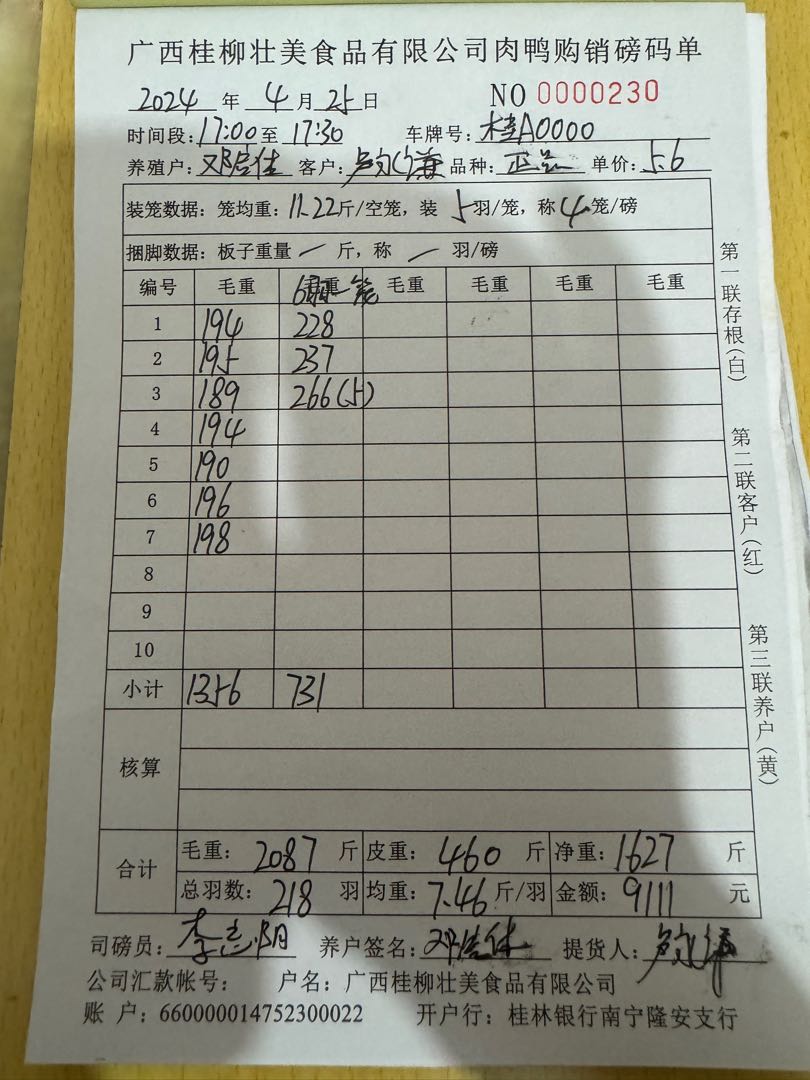 广西桂柳壮美食品有限公司肉鸭购销磅码单
2024 年 4 月 25 日 NO 0000230
时间段：17:00 至 17:30 车牌号：桂A0000
养殖户： 客户： 品种：正品 单价：5.6
装笼数据：笼均重：11.22 斤/空笼，装 5 羽/笼，称 4 笼/磅
捆脚数据：板子重量 一 斤，称 一 羽/磅
编号 毛重 毛重 毛重 毛重 毛重 毛重
1 194 228
2 195 237
3 189 266(5)
4 194
5 190
6 196
7 198
8
9
10
小计 1356 731
核算
合计 毛重：2087 斤 皮重：460 斤 净重：1627 斤
总羽数：218 羽 均重：7.46 斤/羽 金额：9111 元
司磅员：李志阳 养户签名： 提货人：
公司汇款帐号： 户名：广西桂柳壮美食品有限公司
账 户：660000014752300022 开户行：桂林银行南宁隆安支行
第一联存根(白)
第二联客户(红)
第三联养户(黄)